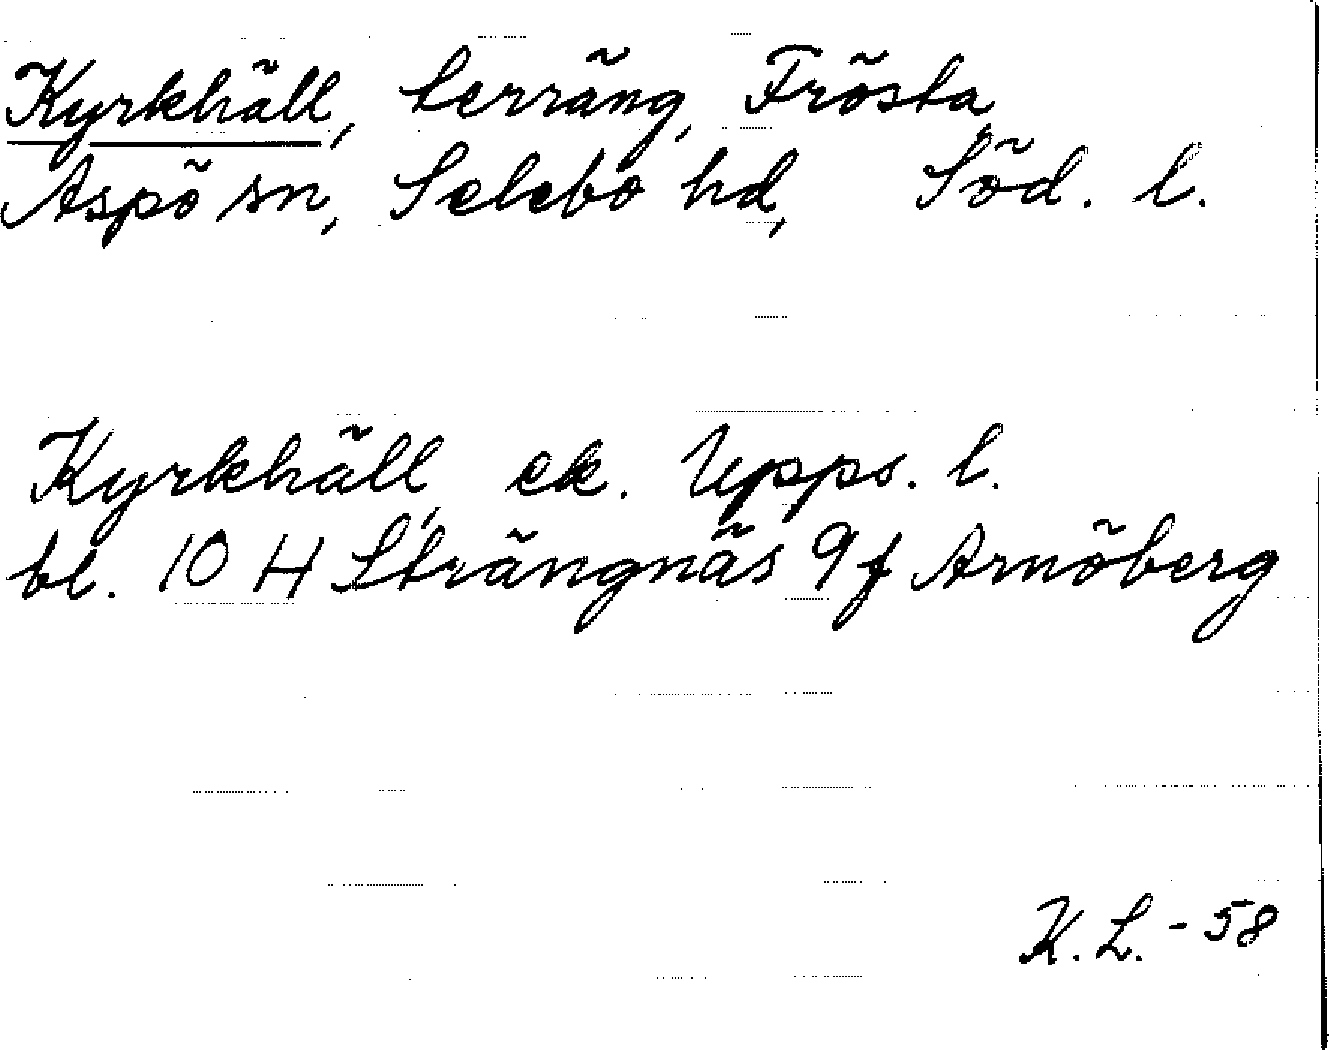 Kyrkhäll, terräng, Frösta,
Aspö sn, Selebo hd, Söd. l.
Kyrkhäll, ek. Upps. l.
bl. 10 H Strängnäs 9 f Arnöberg
K.L. - 58